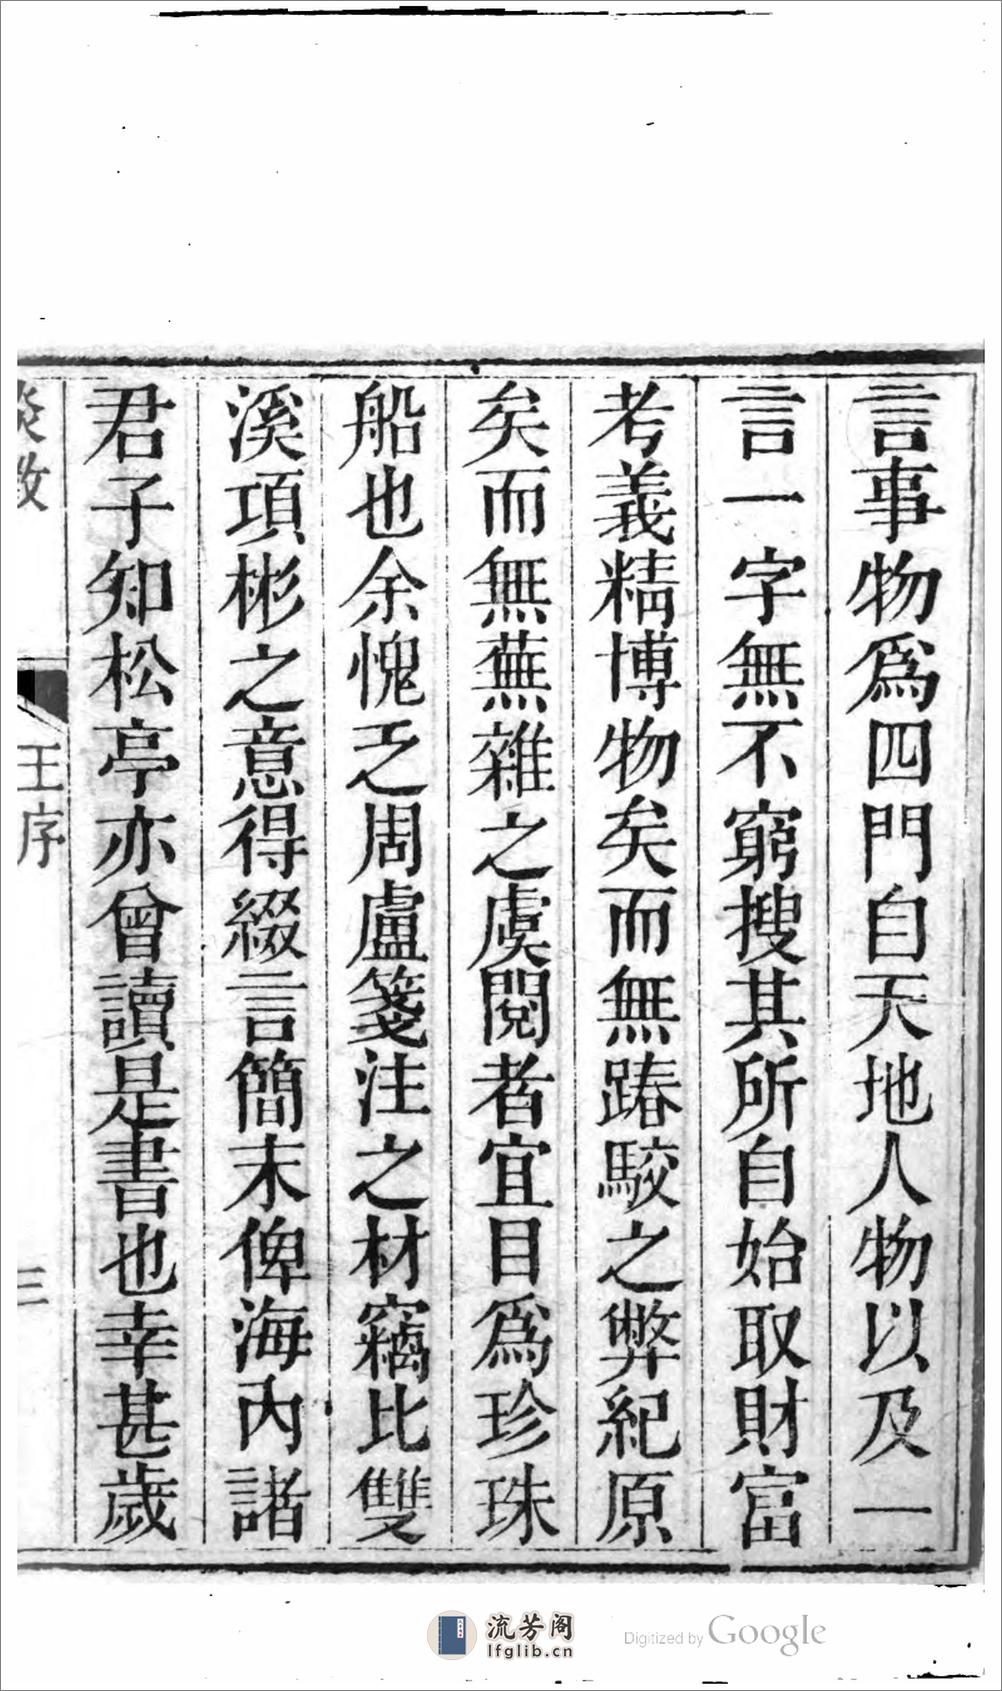 言事物為四門自天地人物以及一
言一字無不窮搜其所自始取財富
考義精博物矣而無踳駮之弊紀原
矣而無蕪雜之虞閱者宜目為珍珠
船也余愧乏周盧箋注之材竊比雙
溪項彬之意得綴言簡末俾海內諸
君子知松亭亦曾讀是書也幸甚歲
王序
三
流芳阁
lfglib.cn
Digitized by Google